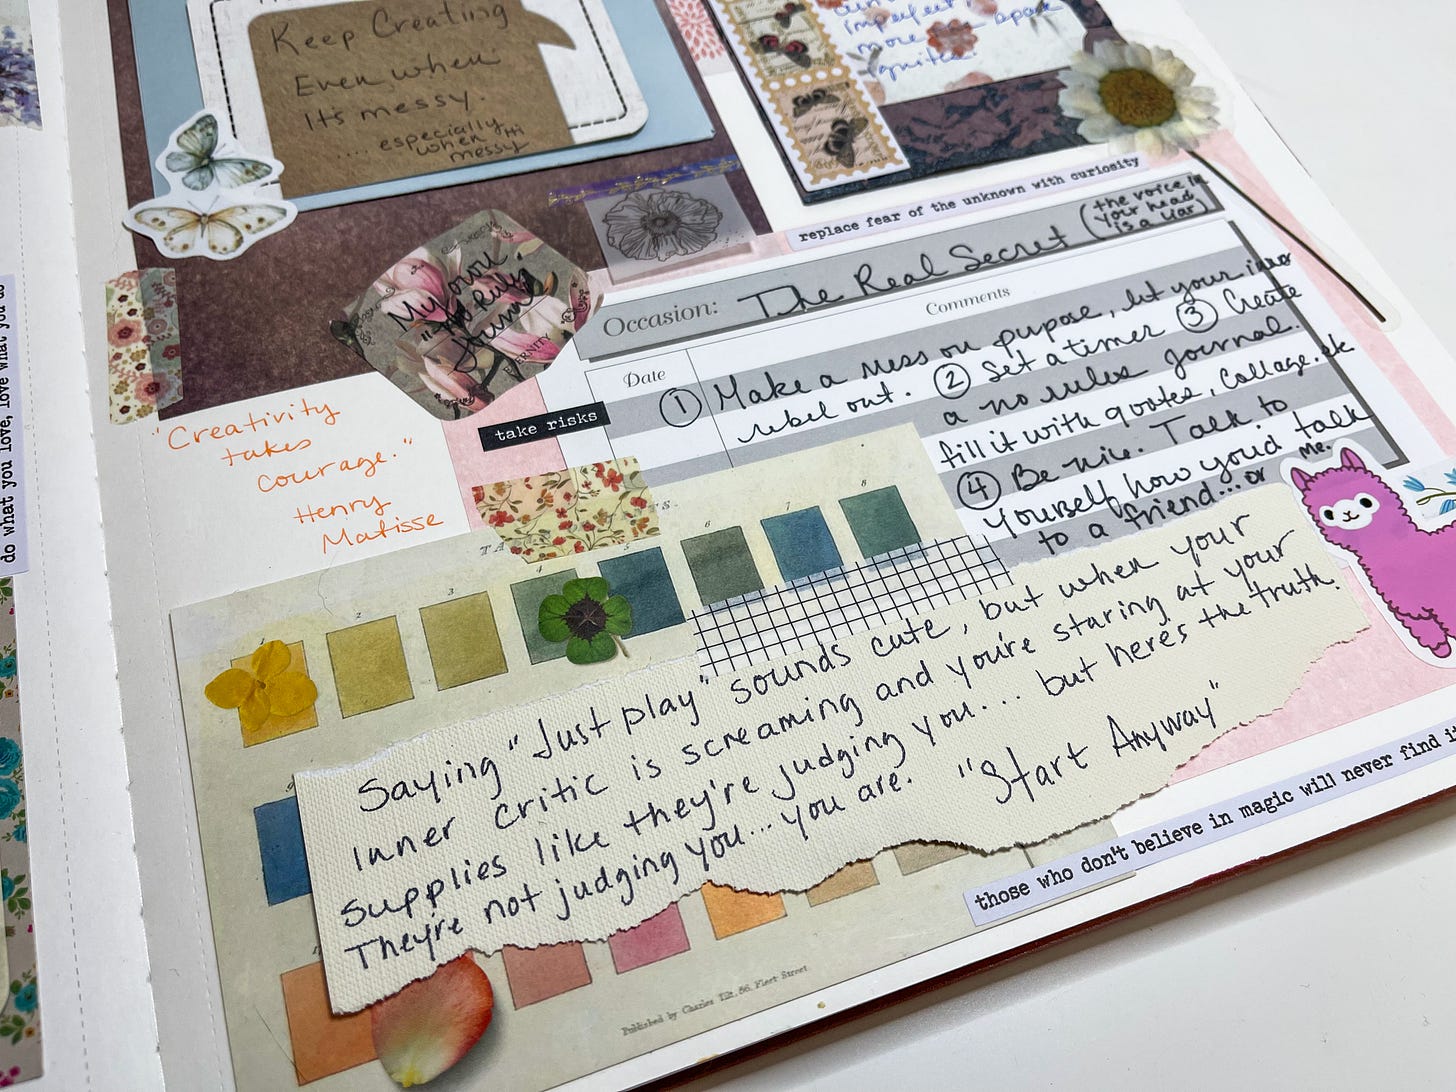 Keep Creating
Even when
It's messy.
.... especially
when it's
messy
imperfect
more
spark
ignites
replace fear of the unknown with curiosity
Occasion: The Real Secret (the voice in
your head
is a liar)
Date
Comments
① Make a mess on pupose, let your inro
rebel out. ② Set a timer ③ Create
a no rules journal.
fill it with quotes, collage, etc
④ Be nice. Talk to
yourself how you'd talk
to a friend... or me.
My own
"No Rules
Journal"
ERNITY
take risks
"Creativity
takes
courage."
Henry
Matisse
do what you love, love what you do
TA
1 2 3 4 5 6 7 8
Saying "Just play" sounds cute, but when your
inner critic is screaming and you're staring at your
supplies like they're judging you... but heres the truth.
They're not judging you... you are. "Start Anyway"
those who don't believe in magic will never find it
Published by Charles Tilt, 86, Fleet Street